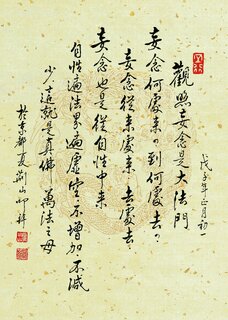 戊子年正月初一
觀照妄念是大法門
妄念何處來?到何處去?
妄念從來處來 去處去
妄念也是從自性中來
自性遍法界遍虛空不增加不減
少 這就是真佛 萬法之母
於京都夏荊山 拜